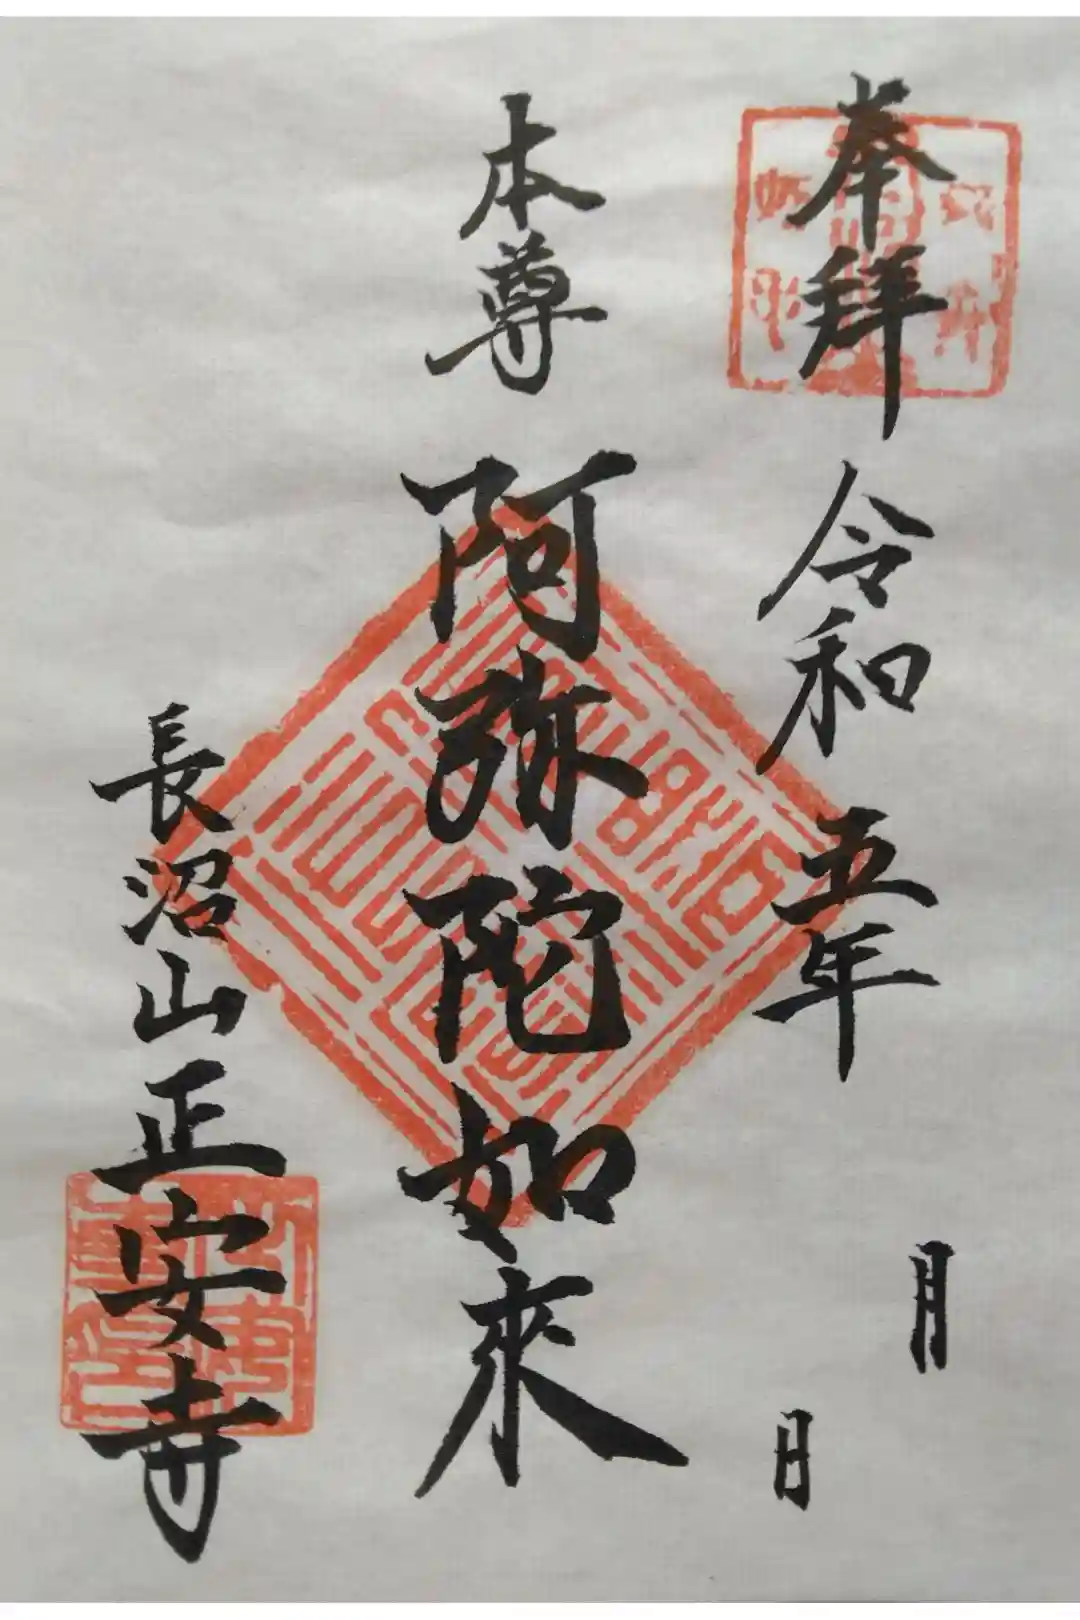 奉拝
令和五年
月
日
本尊
阿弥陀如來
長沼山正安寺